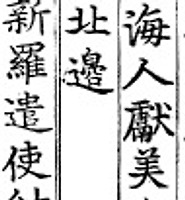 海人獻美
北邊
新羅遣使